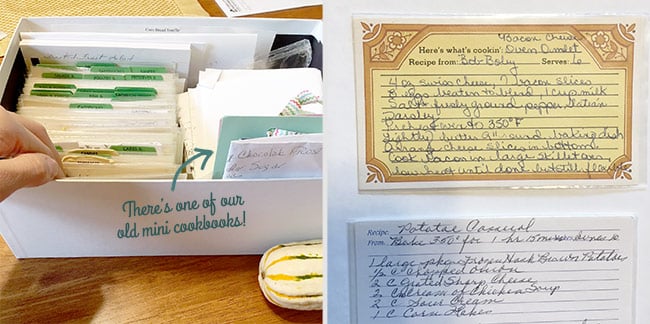 THERE'S ONE OF OUR
OLD MINI COOKBOOKS!
Chocolate
Sugar
Bacon Cheese
Here's what's cookin': Oven Omlet
Recipe from: Bob Boby Serves: 6
4 oz swiss cheese, 7 bacon slices
8 eggs beaten to blend, 1 cup milk
Salt & finely ground pepper,
Parsley
Preheat oven to 350° F
lightly butter 9" round baking dish
Arrange cheese slices in bottom
Cook Bacon in large skillet over
low heat until done but still
Recipe: Potatoe Casserol
From: Bake 350° for 1 hr 15 min Serves 10
1 large pkg frozen Hash Brown Potatoes
1/2 C chopped onion
2 C Grated Sharp Cheese
2 C Cream of Chicken Soup
2 C Sour Cream
1 C Corn Flakes